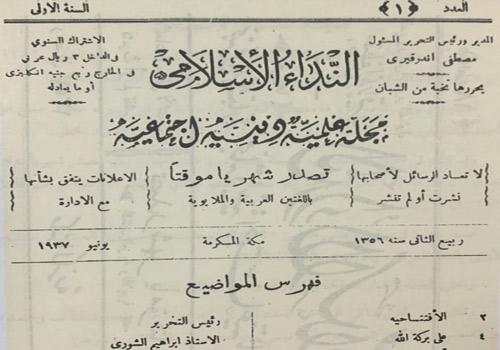 العدد ﴿١﴾ السنة الاولى
المدير ورئيس التحرير المسئول
مصطفى اندرقيرى
يحررها نخبة من الشبان
النداء الأسلامى
الاشتراك السنوي
فى الداخل ٣ ريال عربي
فى الخارج ربع جنيه انكليزي
أو ما يعادله
مجلة علمية دينية اجتماعية
لا تعاد الرسائل لأصحابها
نشرت أو لم تنشر
تصدر شهريا موقتاً
باللغتين العربية والملايوية
الاعلانات يتفق بشأنها
مع الادارة
ربيع الثانى سنه ١٣٥٦ مكة المكرمة يونيو ١٩٣٧
فهرس المواضيع
٢ الأفتتاحيه رئيس التحرير
٤ على بركة الله الاستاذ ابراهيم الشورى